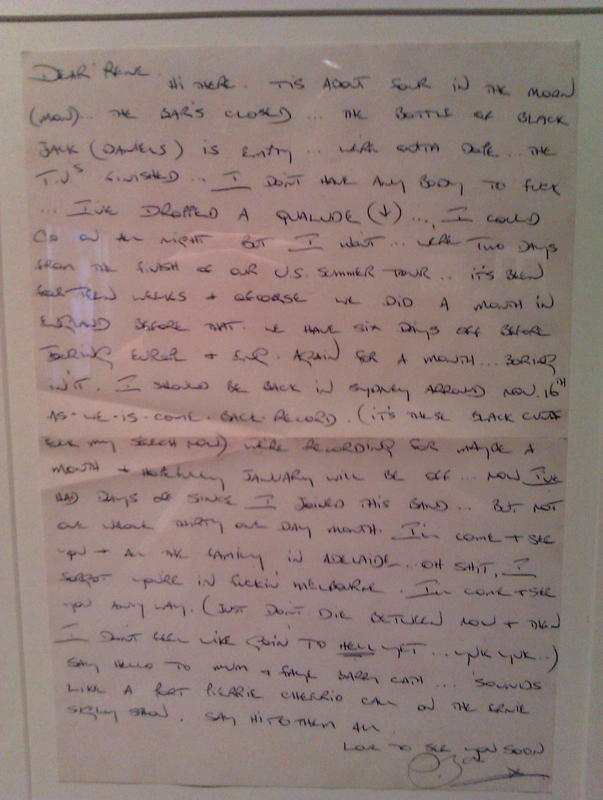 DEAR RENE.
HI THERE. TIS ABOUT FOUR IN THE MORN
(MON)... THE BAR'S CLOSED... THE BOTTLE OF BLACK
JACK (DANIELS) IS EMPTY... WE'RE OUTTA DATE... THE
T.V'S FINISHED... I DON'T HAVE ANY BODY TO FUCK
... I'VE DROPPED A QUALUDE (↓)... I COULD
GO ON ALL NIGHT BUT I WON'T... WERE TWO DAYS
FROM THE FINISH OF OUR U.S. SUMMER TOUR... IT'S BEEN
FOURTEEN WEEKS + OFCORSE WE DID A MONTH IN
ENGLAND BEFORE THAT. WE HAVE SIX DAYS OFF BEFORE
TOURING EUROPE + ENG. AGAIN FOR A MONTH... BORING
IN'IT. I SHOULD BE BACK IN SYDNEY ARROUND NOV. 16TH
AS-WE-IS-COME-BACK-RECORD. (IT'S THESE BLACK
MY SPEECH NOW) WERE RECORDING FOR MAYBE A
MONTH + HOPEFULLY JANUARY WILL BE OFF... NOW I'VE
HAD DAYS OF SINCE I JOINED THIS BAND... BUT NOT
ONE WHOLE THIRTY ONE DAY MONTH. I'LL COME + SEE
YOU + ALL THE FAMILY IN ADELAIDE... OH SHIT, I
FORGOT YOU'RE IN FUCKIN' MELBOURNE. I'LL COME + SEE
YOU ANY WAY. (JUST DON'T DIE BETWEEN NOW + THEN
I DON'T FEEL LIKE GOIN' TO HELL YET... YUK YUK..)
SAY HELLO TO MUM + FAYE BARRY CATH... SOUNDS
LIKE A PORT PIERRIE CHEERIO CALL ON THE ERNIE
SIGLEY SHOW. SAY HI TO THEM ALL.
LOVE TO SEE YOU SOON
BON X